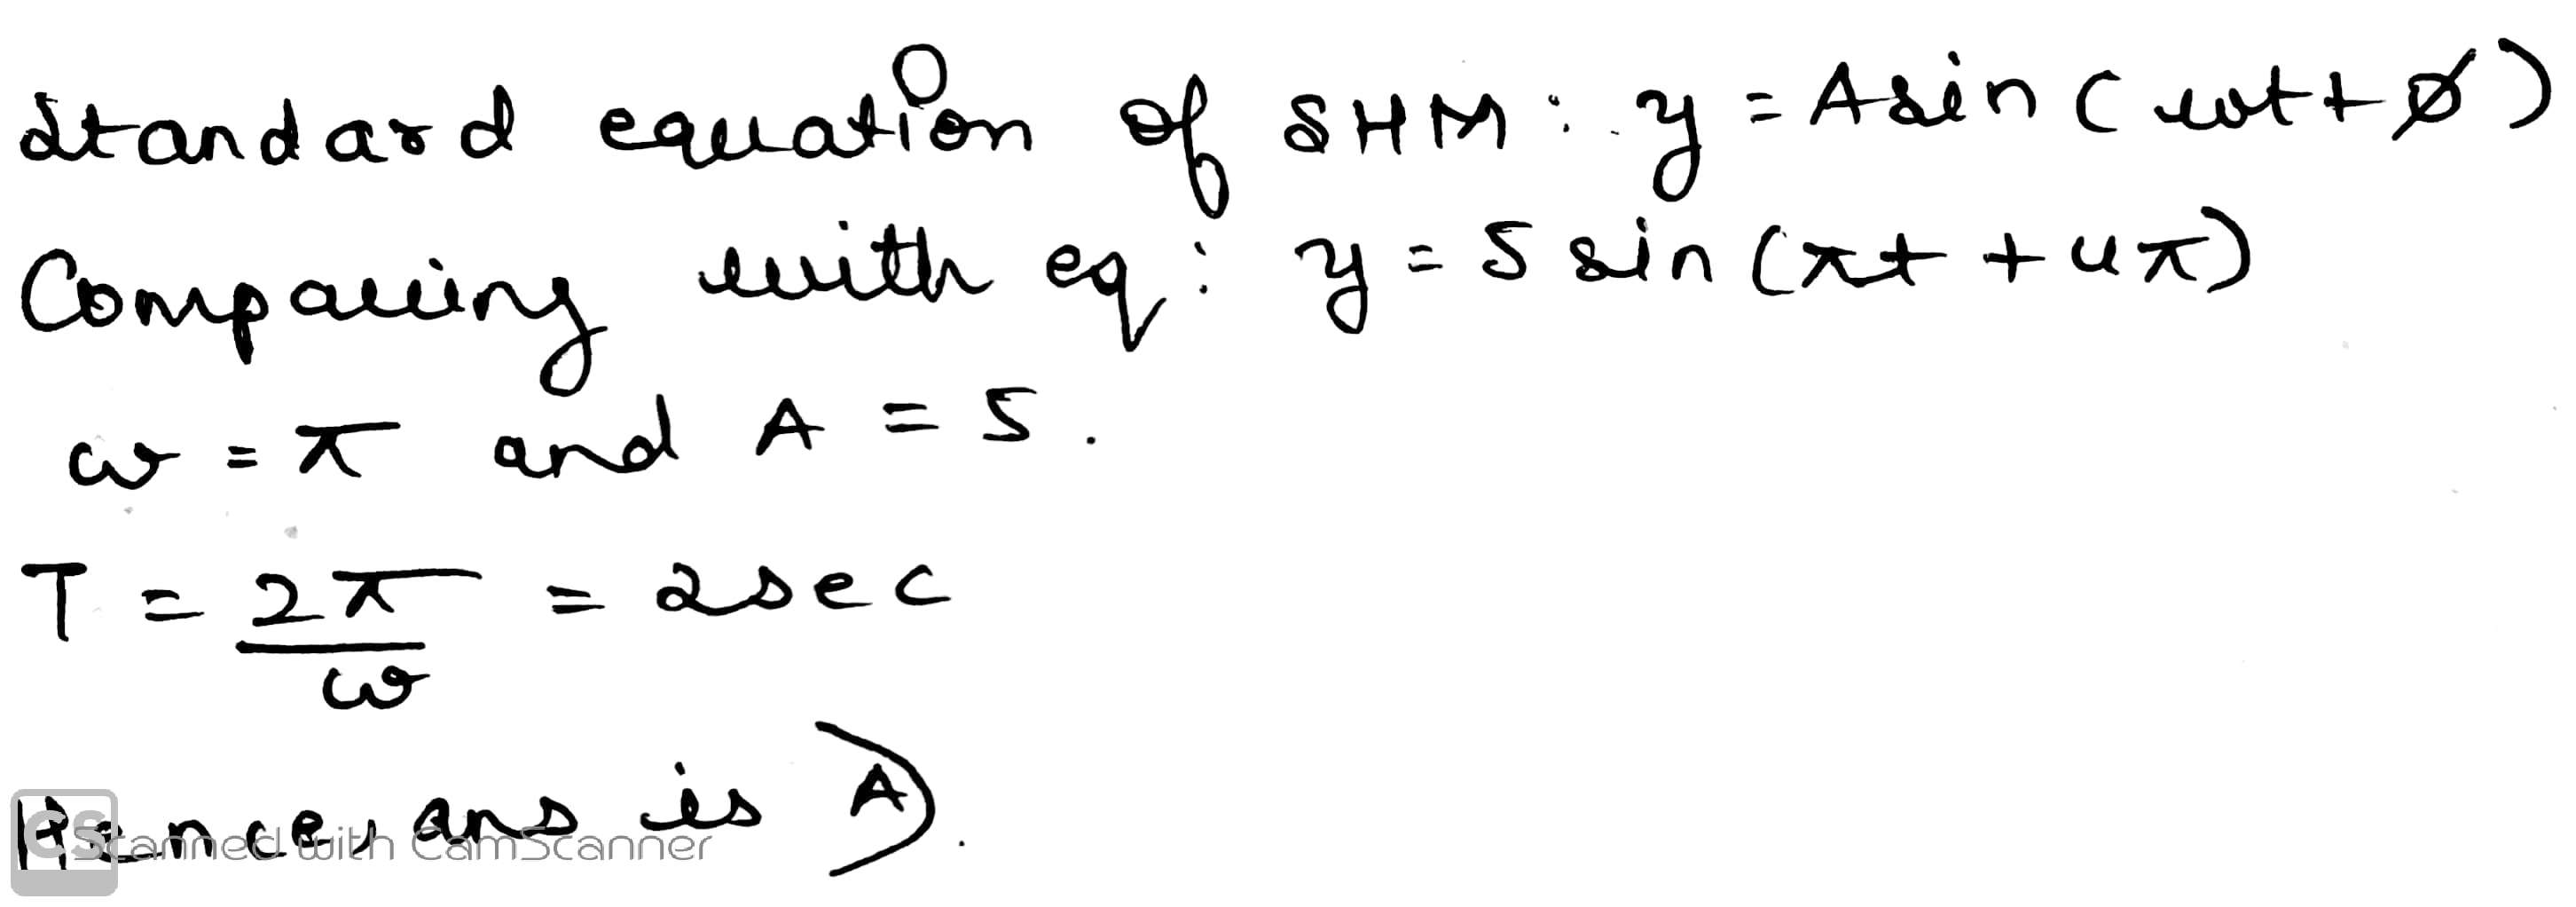 Standard equation of SHM : y = A sin (ωt + ø)
Comparing with eq : y = 5 sin (πt + 4π)
ω = π and A = 5.
T = 2π/ω = 2 sec
Hence, ans is A).
CS Scanned with CamScanner